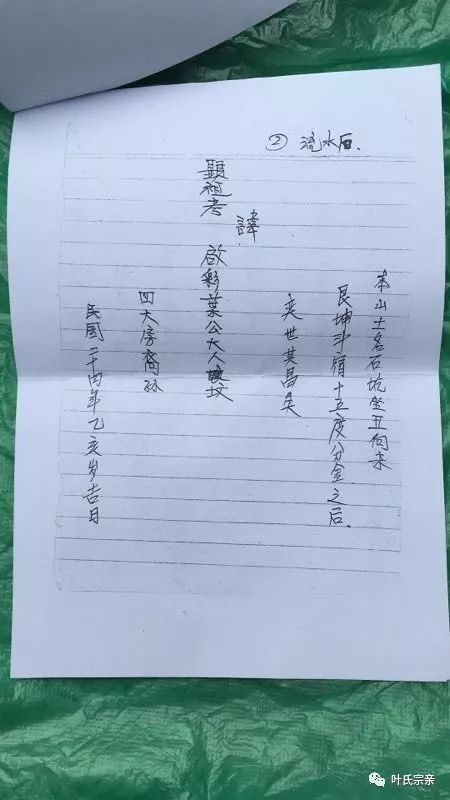 ② 流水石.
本山土名石坑坐丑向未
艮坤斗宿十五度分金之后.
奕世其昌矣
諱
顕祖考 啟彩葉公大人墳
四大房裔孙
民国二十四年乙亥岁吉日
叶氏宗亲